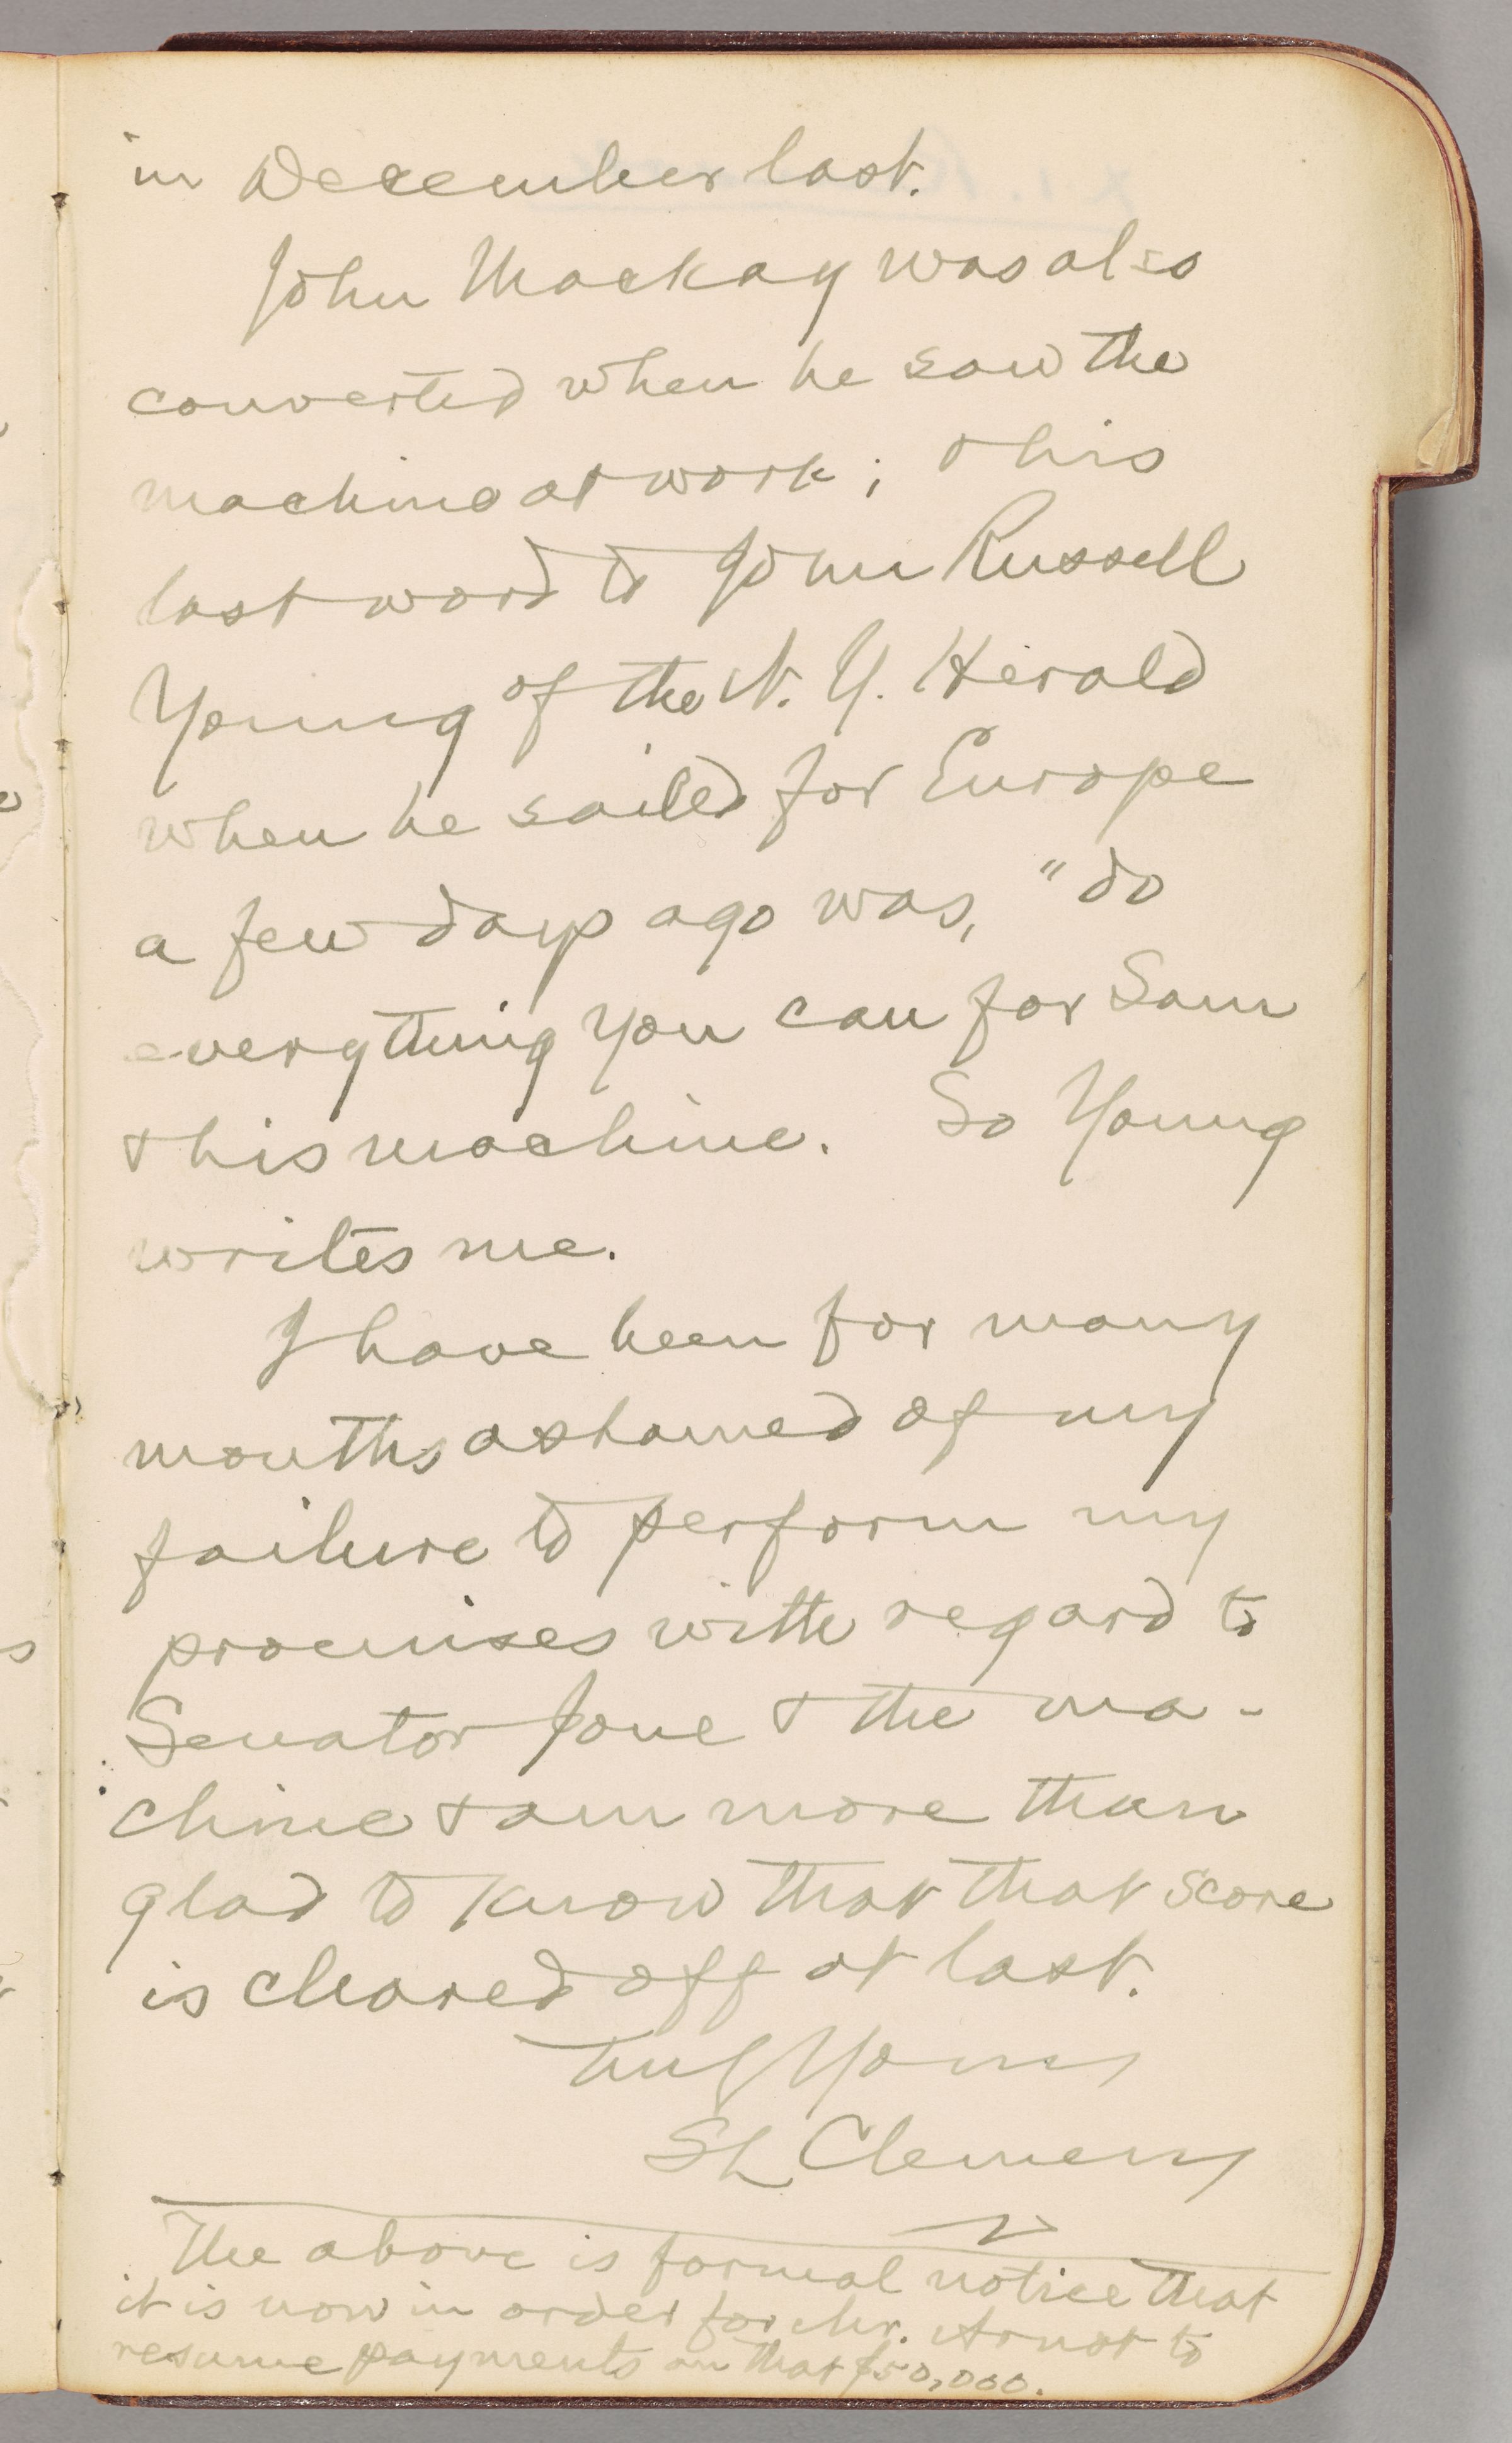 in December last.
John Mackay was also
converted when he saw the
machine at work; & his
last word to John Russell
Young of the N. Y. Herald
when he sailed for Europe
a few days ago was, "do
everything you can for Sam
& his machine. So Young
writes me.
I have been for many
months ashamed of my
failure to perform my
promises with regard to
Senator Jone & the ma-
chine & am more than
glad to know that that score
is cleared off at last.
Truly Yours
SL Clemens
The above is formal notice that
it is now in order for Mr. Arnot to
resume payments on that $50,000.